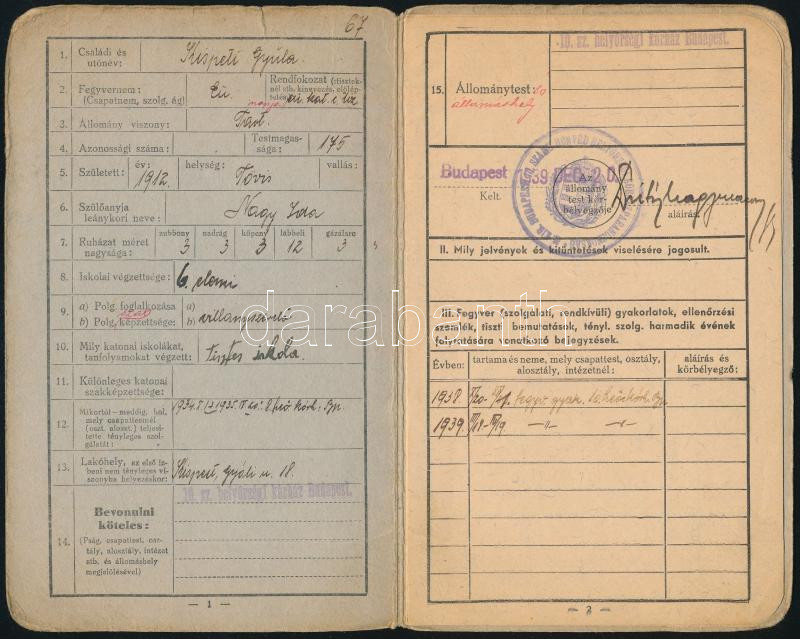 67
1. Családi és utónév: Kispeti Gyula
2. Fegyvernem: (Csapatnem, szolg. ág) Eü. Rendfokozat (tisztek-
nél stb. kinevezés, előlép-
tetés
3. Állomány viszony: Tart.
4. Azonossági száma: . Testmagas-
sága: 175
5. Született: év: 1912. helység: Tövis vallás:
6. Szülőanyja
leánykori neve: Nagy Ida
7. Ruházat méret
nagysága: zubbony 3 nadrág 3 köpeny 3 lábbeli 12 gázálarc 3
8. Iskolai végzettsége: 6 elemi
9. a) Polg. foglalkozása a)
b) Polg. képzettsége: b) villanyszerelő
10. Mely katonai iskolákat,
tanfolyamokat végzett: tisztes iskola.
11. Különleges katonai
szakképzettsége:
12. Mikortúl-meddig, hol,
mely csapattestnél
(oszt. aloszt.) teljesí-
tette tényleges szol-
gálatát:
13. Lakóhely, az első íz-
beni nem tényleges vi-
szonyba helyezéskor: Kispest, Gyáli u. 18.
14. Bevonulni
köteles:
(Pság, csapattest, osz-
tály, alosztály, intézet
stb. és állomáshely
megjelölésével)
10. sz. helyőrségi kórház Budapest.
— 1 —
10. sz. helyőrségi kórház Budapest.
15. Állománytest:
állomáshely
Budapest 1939 DEC 20.
Kelt.
Az
állomány
test kör-
bélyegzője
aláírás
II. Mily jelvények és kitüntetések viselésére jogosult.
III. Fegyver (szolgálati, rendkívüli) gyakorlatok, ellenőrzési
szemlék, tiszti bemutatások, tényl. szolg. harmadik évének
folytatására vonatkozó bejegyzések.
Évben: tartama és neme, mely csapattest, osztály,
alosztály, intézetnél: aláírás és
körbélyegző:
1938.
1939.
— 2 —
darabanth.com